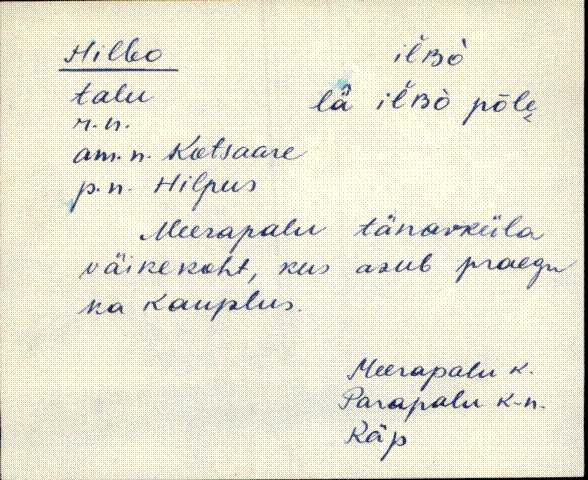 Hilbo
ilʙò
talu
lä ilʙò põle̮
r.n.
am.n. Kotsaare
p.n. Hilpus
Meerapalu tänavküla
väikekoht, kus asub praegu
ka kauplus.
Meerapalu k.
Parapalu k-n.
Käp